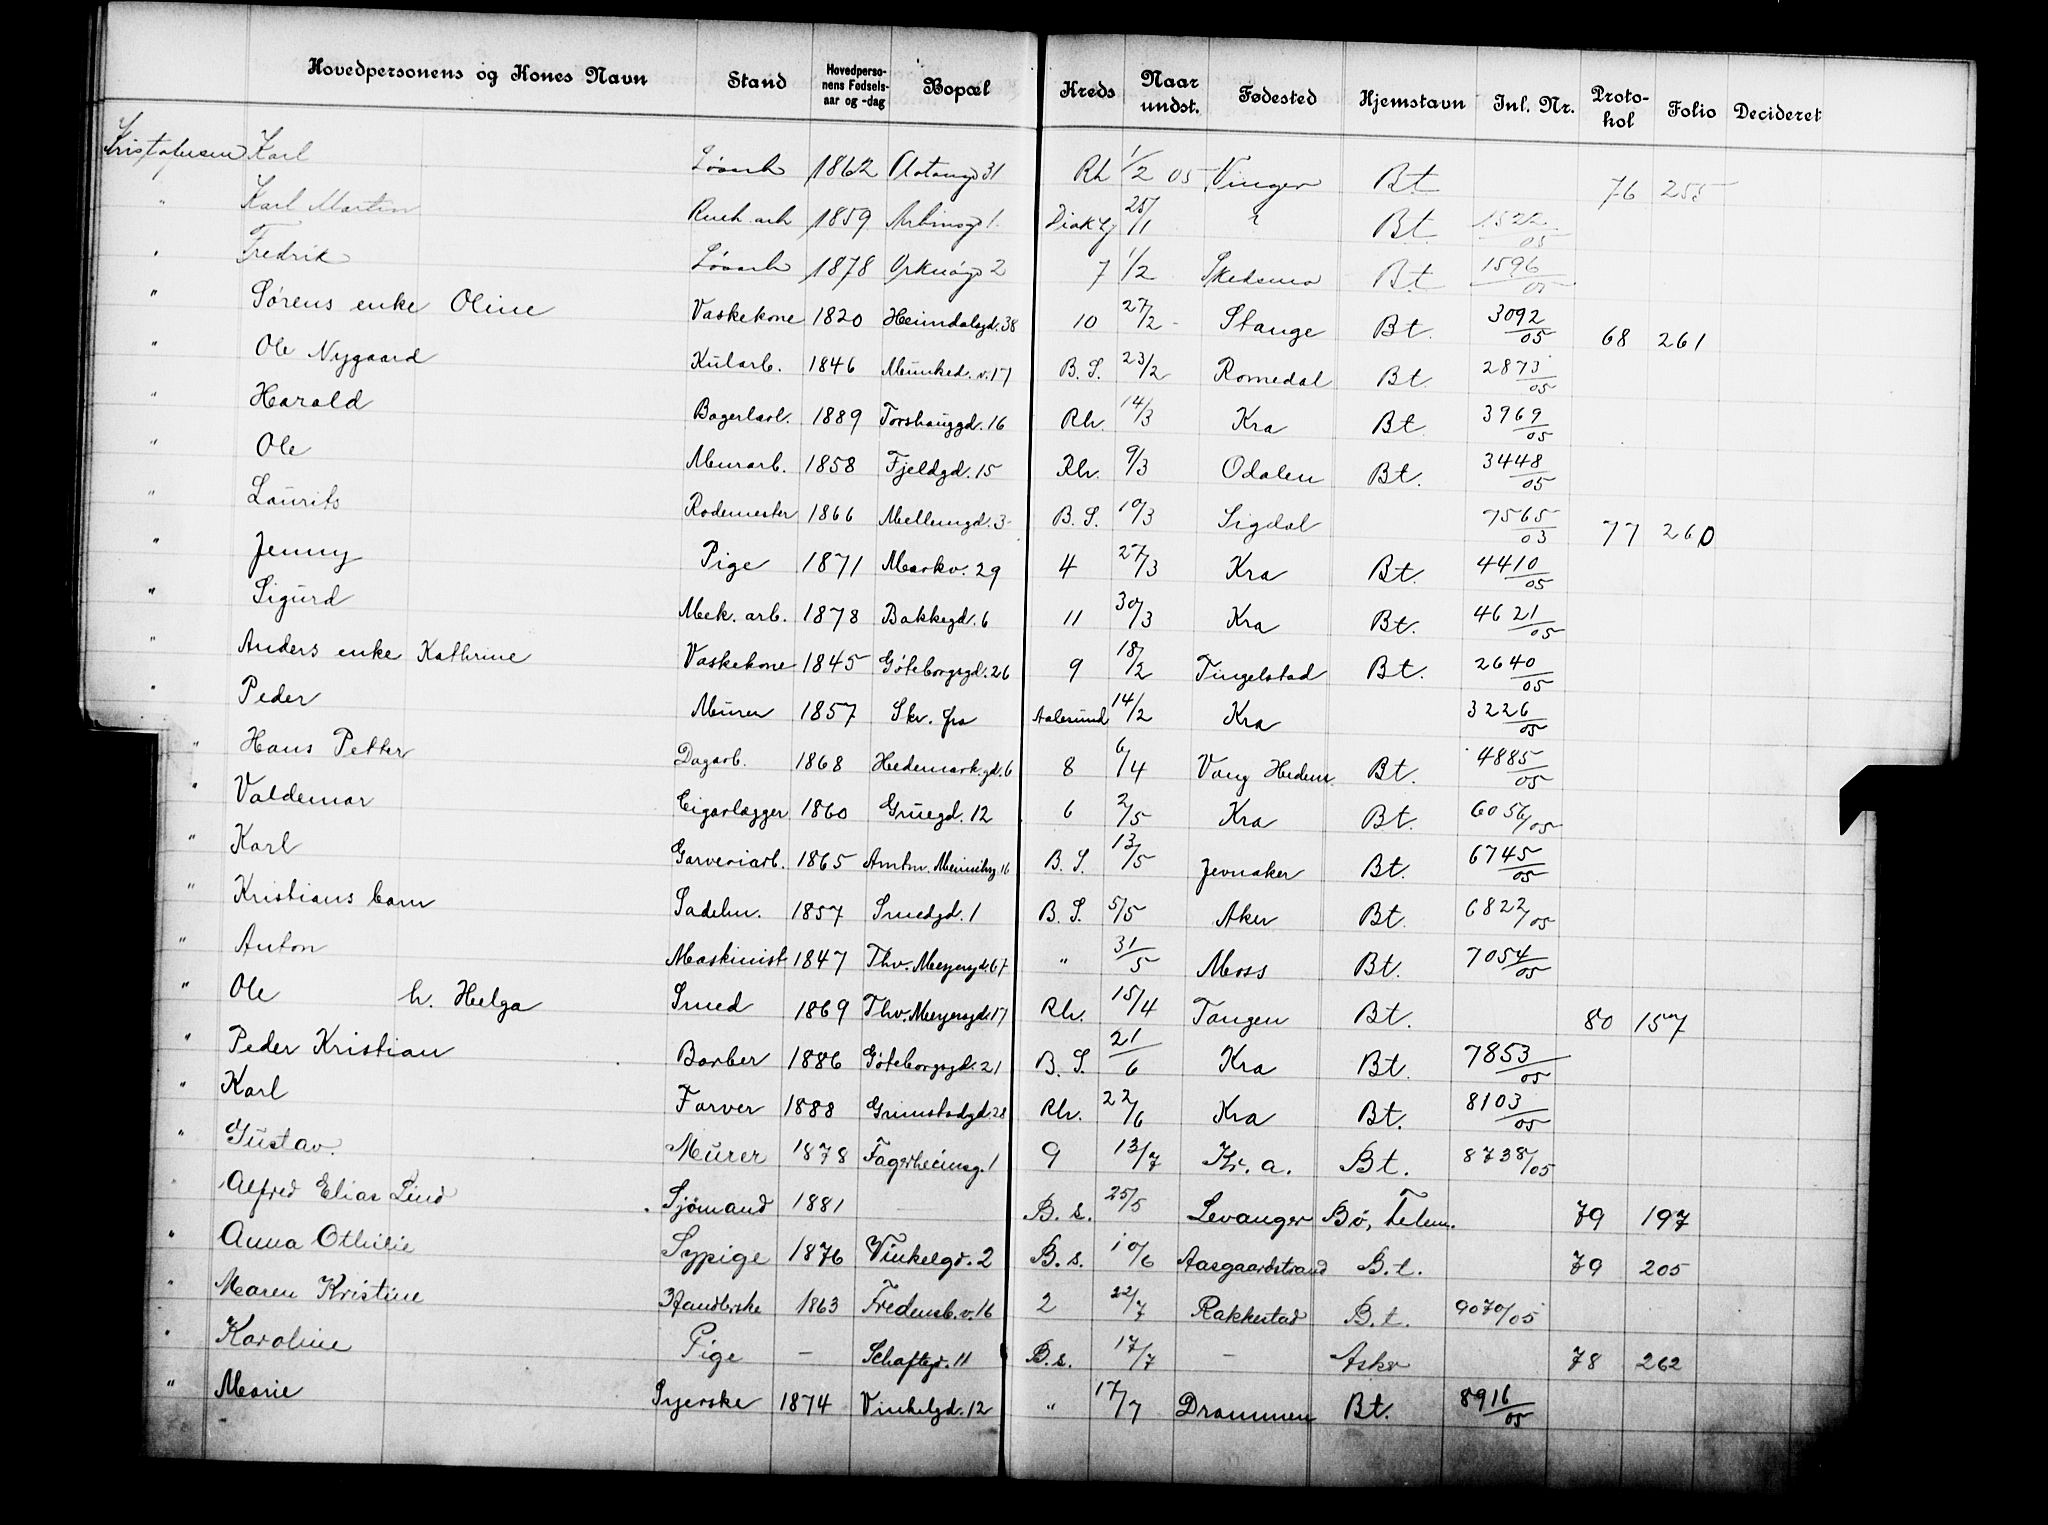 Hovedpersonens og Kones Navn Stand Hovedperso-nens Fødsels-aar og -dag Bopæl Kreds Naar undst. Fødested Hjemstavn Inl. Nr. Proto-kol Folio Decideret
Kristofersen Karl Løsarb 1862 31 Rh 1/2 05 Vinger Bt 76 255
" Karl Martin 1859 Arbinsg 1 25/1 Bt 1522/05
" Fredrik Løsarb 1878 2 7 1/2 Skedsmo Bt 1596/05
" Sørens enke Oline Vaskekone 1820 Heimdalsgd. 38 10 27/2 - Stange Bt. 3092/05 68 261
" Ole Nygaard Kularb. 1846 Munked. v. 17 B. S. 23/2 Romedal Bt. 2873/05
" Harald Bagerlærl. 1889 Torshauggd. 16 Rh. 14/3 Kra Bt. 3969/05
" Ole Murarb. 1858 Fjeldgd. 15 Rh. 9/3 Odalen Bt. 3448/05
" Laurits Rodemester 1866 Mellemgd. 3 B. S. 10/3 Sigdal 7565/03 77 260
" Jenny Pige 1871 Markv. 29 4 27/3 Kra Bt. 4410/05
" Sigurd Mek. arb. 1878 Bakkegd. 6 11 30/3 Kra Bt. 4621/05
" Anders enke Kathrine Vaskekone 1845 Göteborgsgd. 26 9 18/2 Tingelstad Bt. 2640/05
" Peder Murer 1857 Skr. fra Aalesund 14/2 Kra 3226/05
" Hans Petter Dagarb. 1868 Hedemark.gd. 6 8 6/4 Vang Hedem. Bt. 4885/05
" Valdemar Cigarlægger 1860 Gruegd. 12 6 2/5 Kra Bt. 6056/05
" Karl Garveriarb. 1865 Amtm. Meinichg 16 B. S. 13/5 Jevnaker Bt. 6745/05
" Kristians barn Sadelm. 1857 Smedgd. 1 B. S. 5/5 Aker Bt. 6822/05
" Anton Maskinist 1847 Thv. Meyersgd. 67 " 31/5 Moss Bt. 7054/05
" Ole h. Helga Smed 1869 Thv. Meyersgd. 17 Rh. 15/4 Tangen Bt. 80 157
" Peder Kristian Barber 1886 Göteborgsgd. 21 B. S. 21/6 Kra Bt. 7853/05
" Karl Farver 1888 Grimstadgd. 28 Rh. 22/6 Kra Bt. 8103/05
" Gustav. Murer 1878 Fagerheimsg. 1 9 13/7 Kr. a. Bt. 8738/05
" Alfred Elias Lind Sjømand 1881 B. s. 25/5 Levanger Bø, Telem. 79 197
" Anna Othilie Sypige 1876 Vinkelgd. 2 B. s. 10/6 Aasgaardstrand B. t. 79 205
" Maren Kristine Handlerske 1863 Fredensb. v. 16 2 22/7 Rakkestad B. t. 9070/05
" Karoline Pige - Schaftgd. 11 B. s. 17/7 - Askr 78 262
" Marie Syerske 1874 Vinkelgd. 12 " 17/7 Drammen Bt. 8916/05